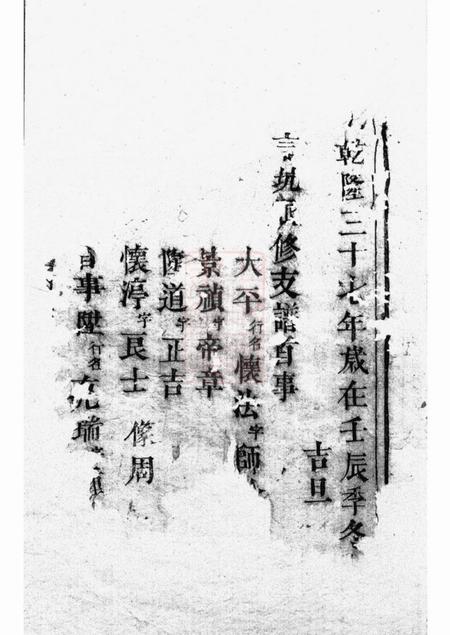 乾隆三十七年歲在壬辰季冬
吉旦
修支譜首事
大平行名懷法字師
景禎字帝章
隆道字正吉
懷淳字艮士 像周
事陞行名允瑞